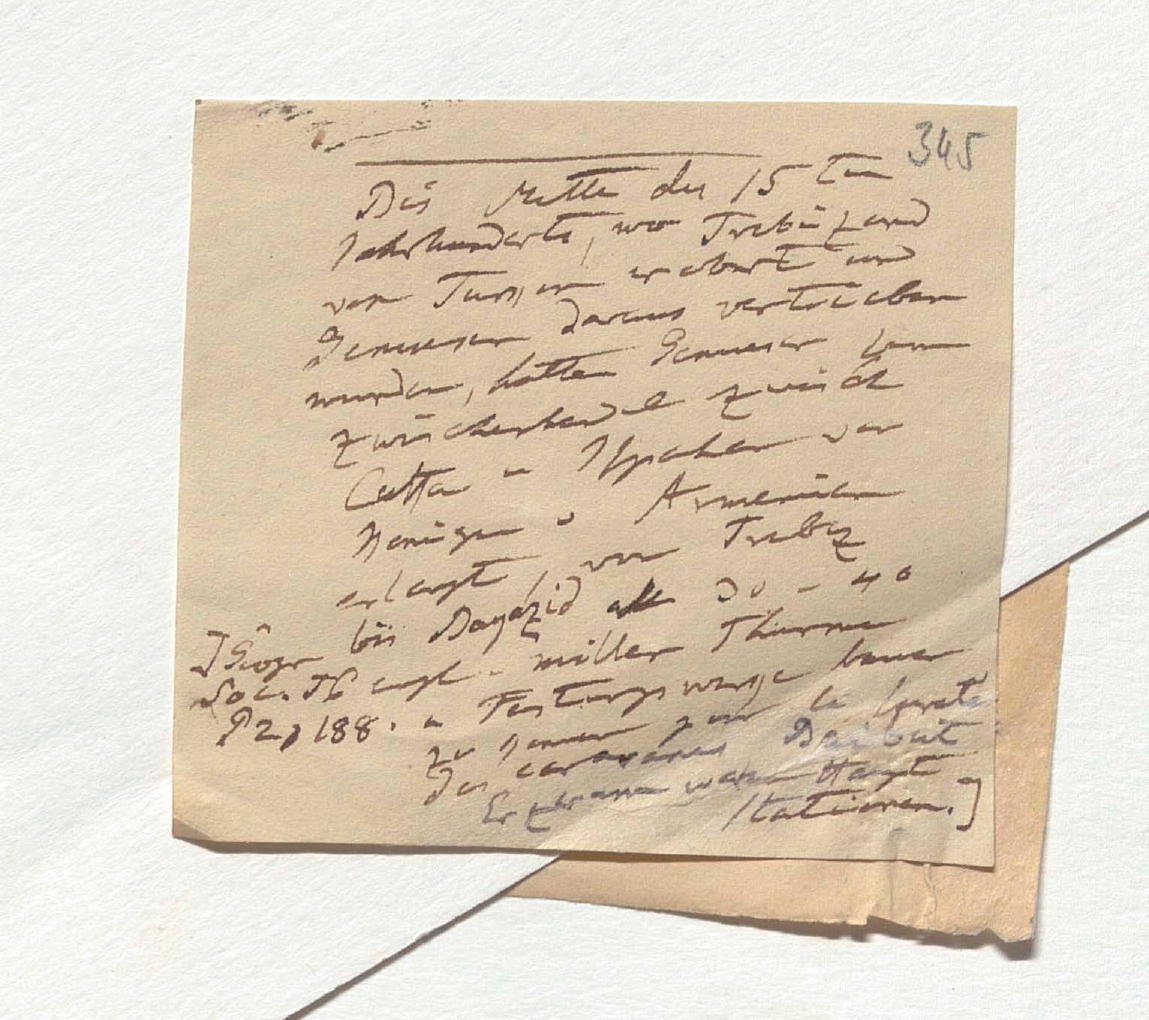 345
Bis Mitte des 15 ten
Jahrhunderts, wo Trebizond
von Turken erobert und
Genueser daraus vertrieben
wurden, hatten Genueser
Zwischenhandel zwisch
Caffa u Ispahan von
Königen v Armenien
erlangt, von Trebiz
bis Bayazid alle 30 – 40
engl. miller Thürme
u Festungswerke bauen
zu können pour la sureté
des caravanes Baibut
Erzerum waren Haupt
stationen.]
[Géogr
Soc. T6
P2, 188.